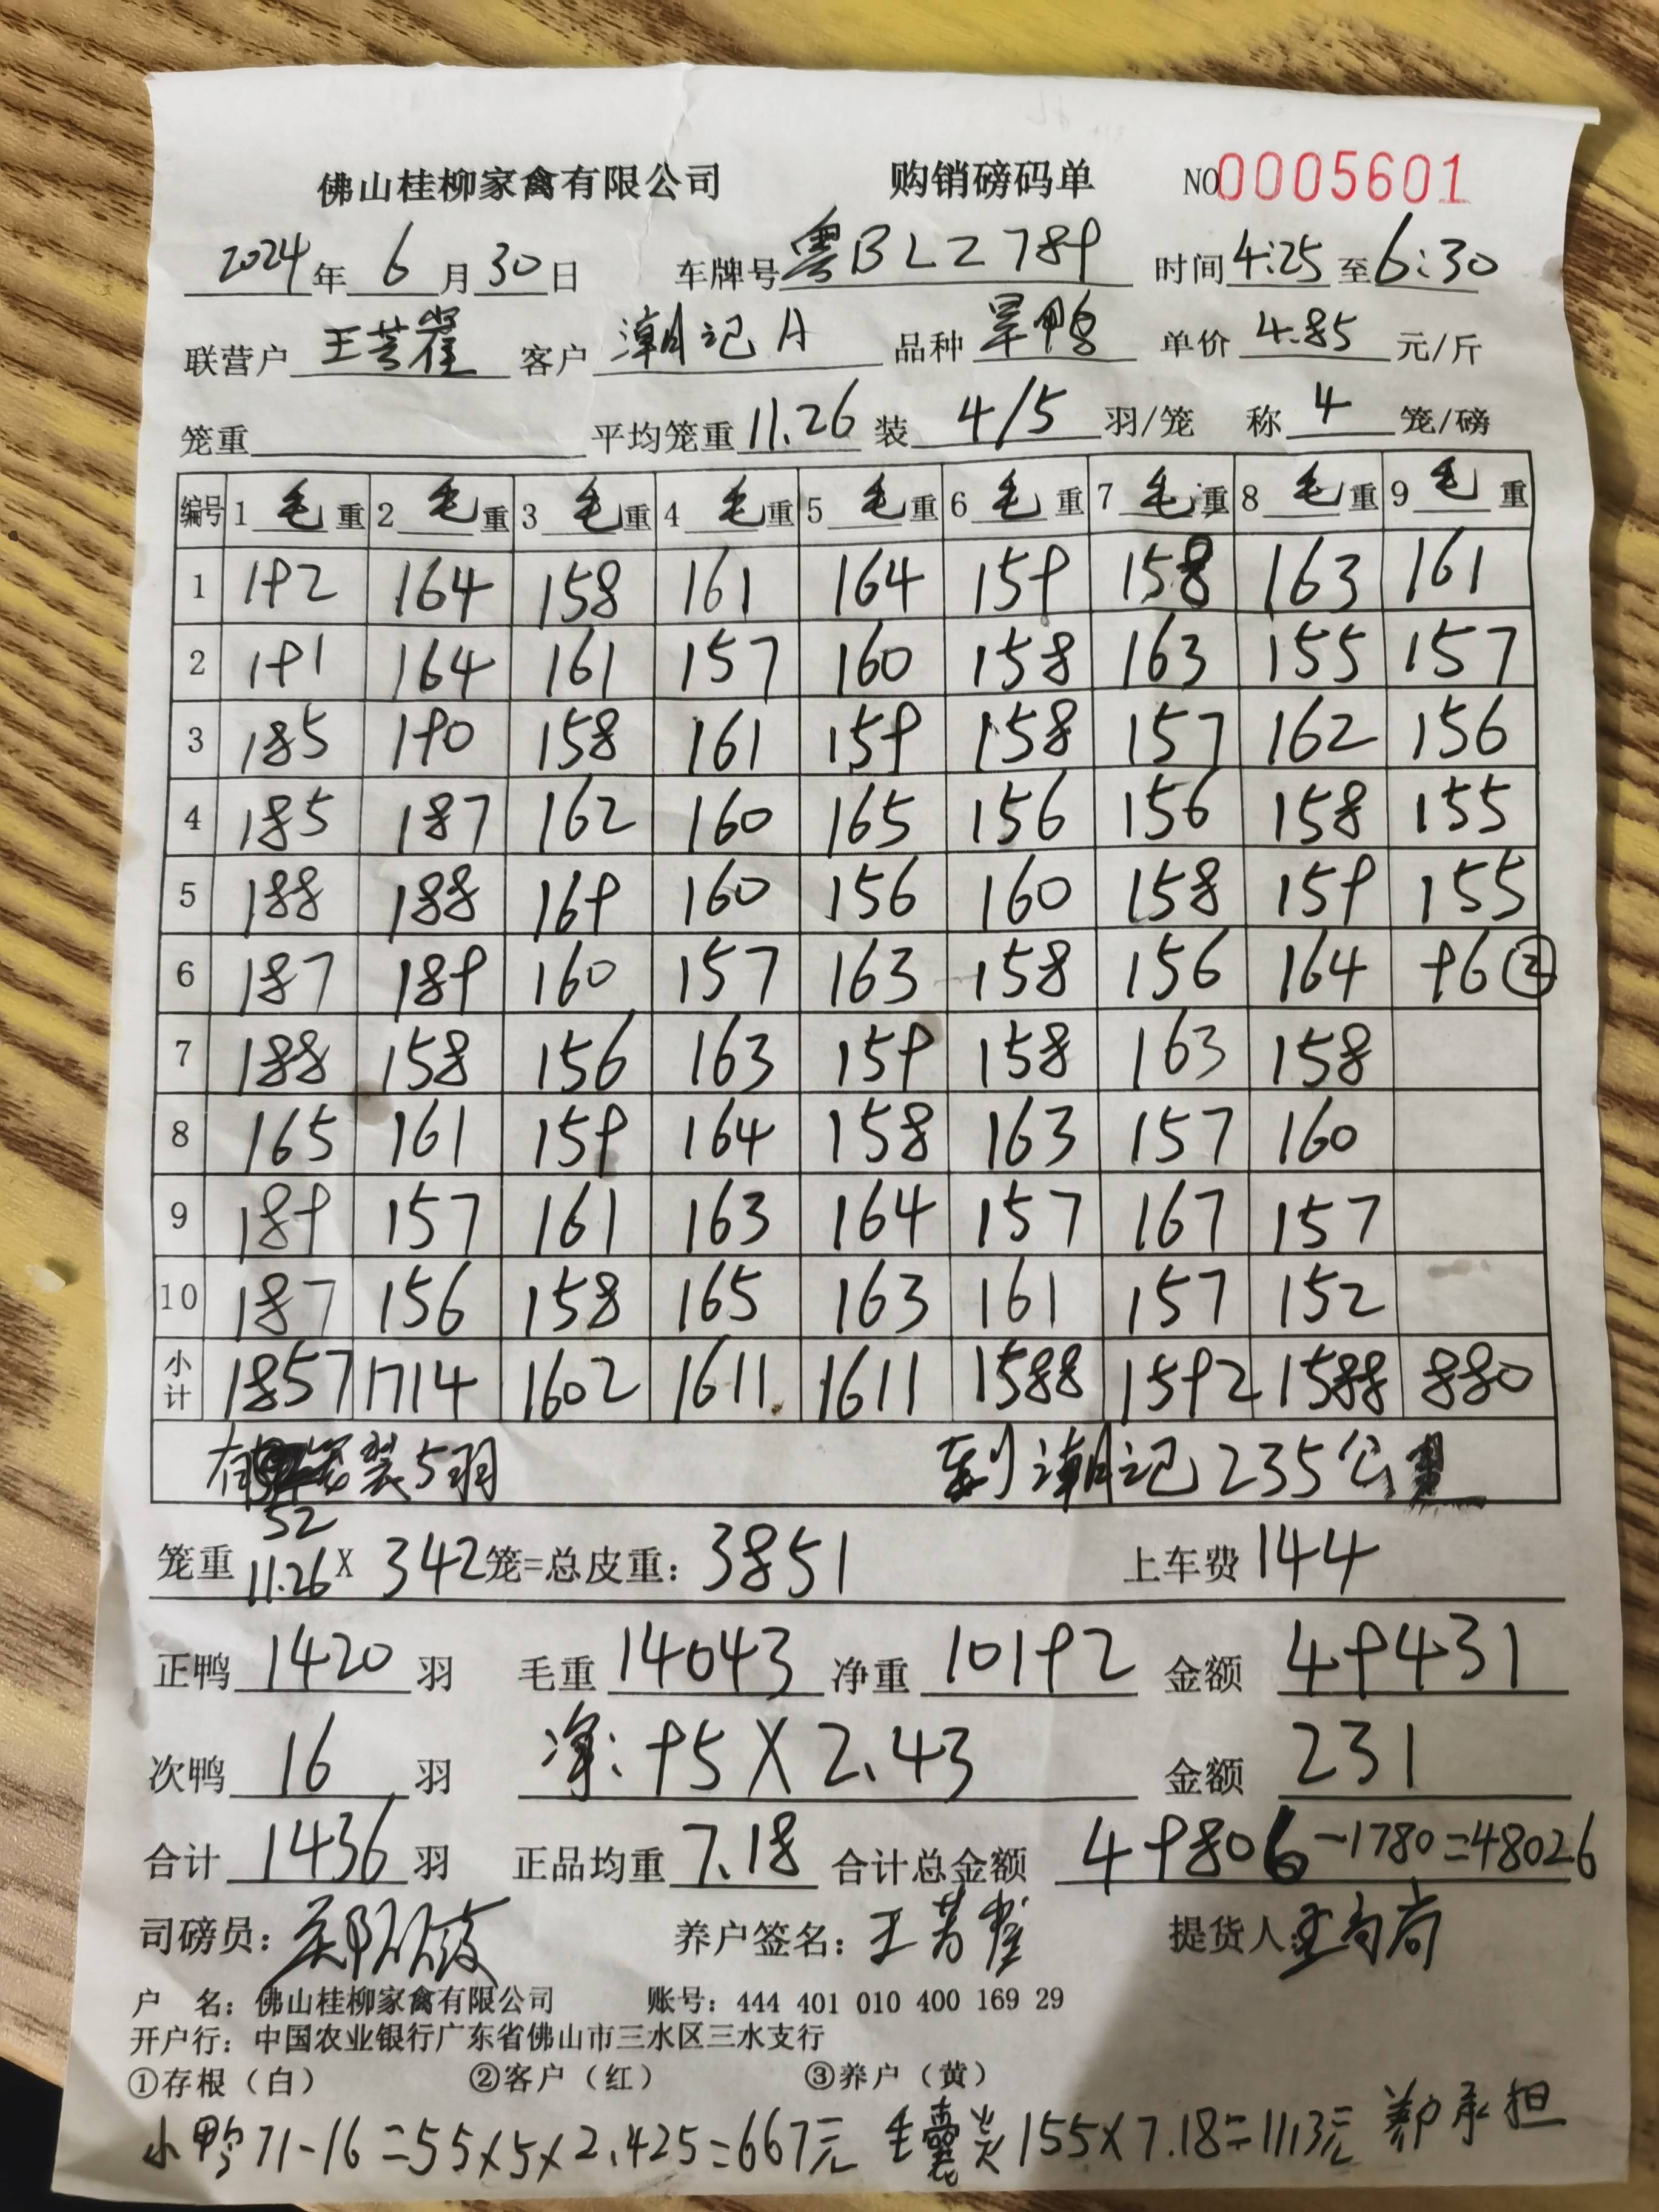 佛山桂柳家禽有限公司 购销磅码单 NO0005601
2024年6月30日 车牌号粤BLZ789 时间4:25至6:30
联营户 王芳 客户 潮记A 品种 旱鸭 单价 4.85 元/斤
笼重 平均笼重11.26 装 4/5 羽/笼 称 4 笼/磅
编号 1 毛 重 2 毛 重 3 毛 重 4 毛 重 5 毛 重 6 毛 重 7 毛 重 8 毛 重 9 毛 重
1 192 164 158 161 164 159 158 163 161
2 191 164 161 157 160 158 163 155 157
3 185 190 158 161 159 158 157 162 156
4 185 187 162 160 165 156 156 158 155
5 188 188 169 160 156 160 158 159 155
6 187 189 160 157 163 158 156 164 96②
7 188 158 156 163 159 158 163 158
8 165 161 159 164 158 163 157 160
9 189 157 161 163 164 157 167 157
10 187 156 158 165 163 161 157 152
小计 1857 1714 1602 1611 1611 1588 1592 1588 880
有 装5羽 到潮记235公里
52
笼重 11.26 X 342笼=总皮重: 3851 上车费 144
正鸭 1420 羽 毛重 14043 净重 10192 金额 49431
次鸭 16 羽 净: 95 X 2.43 金额 231
合计 1436 羽 正品均重 7.18 合计总金额 49806-1780=48026
司磅员: 养户签名: 王芳 提货人:
户 名: 佛山桂柳家禽有限公司 账号: 444 401 010 400 169 29
开户行: 中国农业银行广东省佛山市三水区三水支行
①存根（白） ②客户（红） ③养户（黄）
小鸭71-16=55x5x2.425=667元 毛囊炎155x7.18=1113元 承担